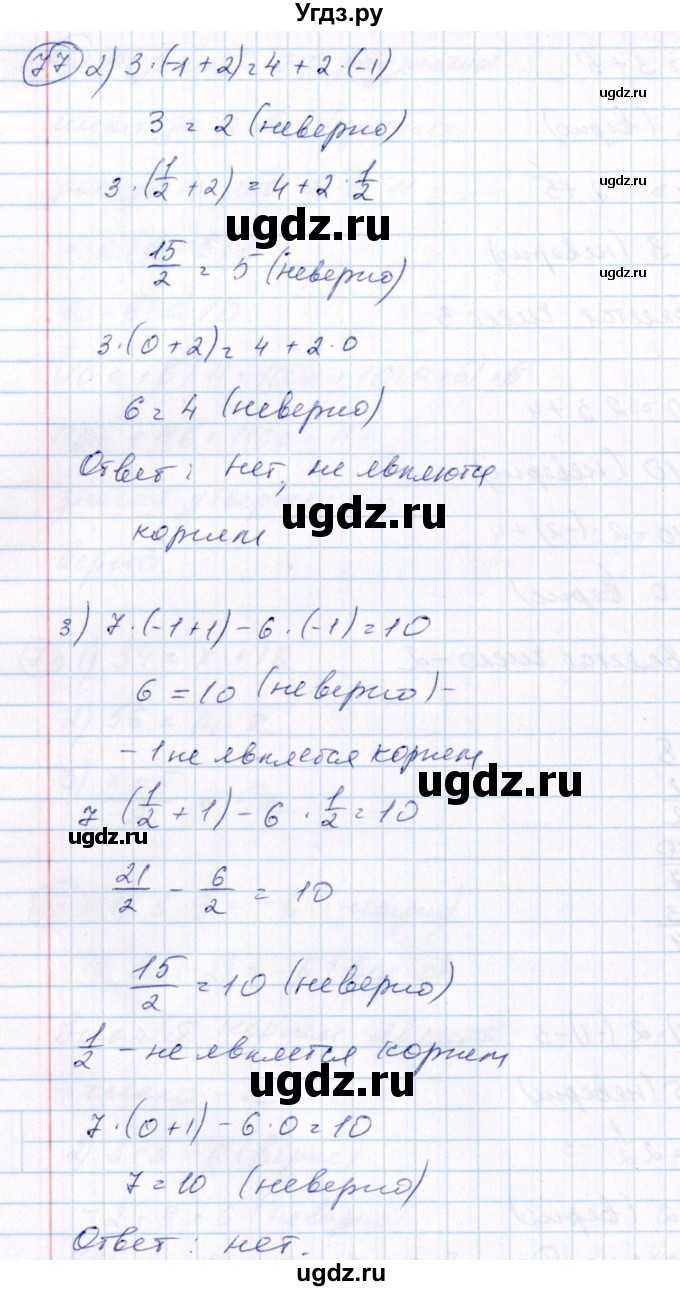 Угдз.ру
77 2) 3·(-1+2)=4+2·(-1)
ugdz.ru
3=2 (неверно)
3·(1/2+2)=4+2·1/2
ugdz.ru
ugdz.ru
15/2=5 (неверно)
ugdz.ru
3·(0+2)=4+2·0
6=4 (неверно)
Ответ: нет, не являются
ugdz.ru
корнем
3) 7·(-1+1)-6·(-1)=10
6=10 (неверно)-
-1 не является корнем
ugdz.ru
7 (1/2+1)-6·1/2=10
ugdz.ru
21/2-6/2=10
15/2=10 (неверно)
1/2 - не является корнем
ugdz.ru
7·(0+1)-6·0=10
7=10 (неверно)
Ответ: нет.
ugdz.ru